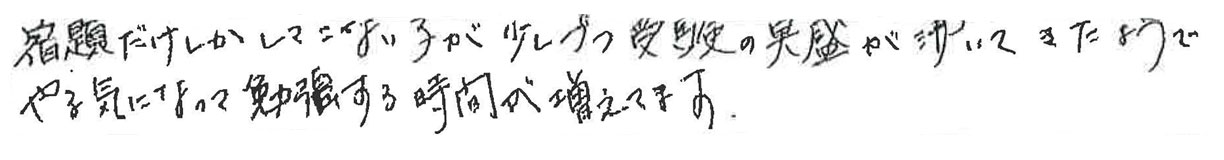 宿題だけしかしてこない子が少しづつ受験の実感が湧いてきたようで
やる気になって勉強する時間が増えてます.